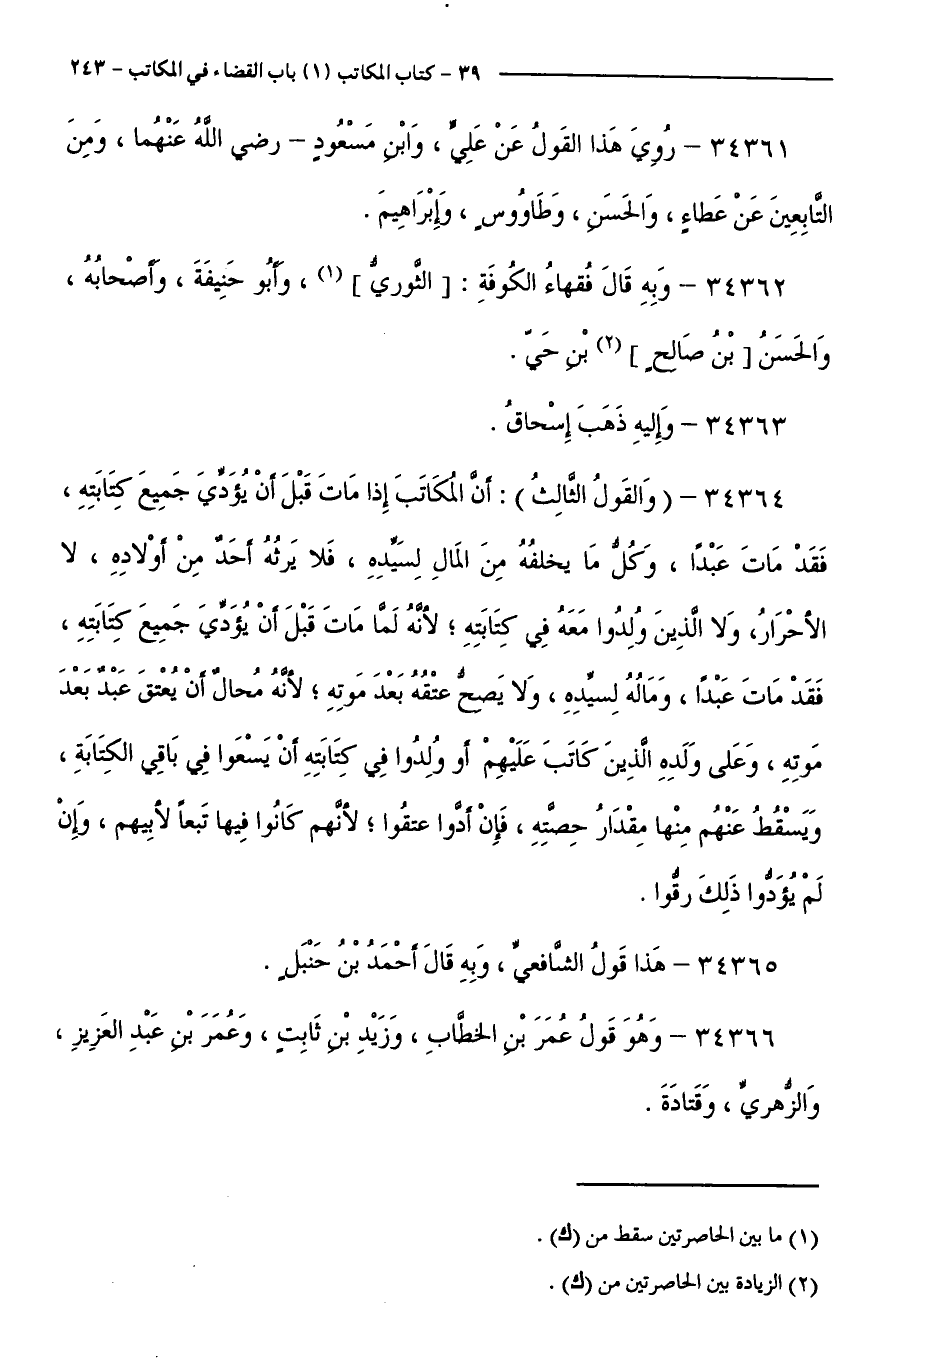 ٣٩ - كتاب المكاتب (١) باب القضاء في المكاتب - ٢٤٣
٣٤٣٦١ - رُوِيَ هَذا القَولُ عَنْ عَلِيٍّ ، وَابْنِ مَسْعُودٍ - رضي اللَّهُ عَنْهُما ، وَمِنَ
التَّابِعِينَ عَنْ عَطاءٍ ، وَالحَسَنِ ، وَطَاوُوسٍ ، وَإِبْرَاهِيمَ .
٣٤٣٦٢ - وَبِهِ قَالَ فُقهاءُ الكُوفَةِ : [ الثَّوريُّ ] (١) ، وَأَبُو حَنِيفَةَ ، وَأَصْحابُهُ ،
وَالحَسَنُ [ بْنُ صَالحٍ ] (٢) بْنِ حَيّ .
٣٤٣٦٣ - وَإِليهِ ذَهَبَ إِسْحاقُ .
٣٤٣٦٤ - ( وَالقَولُ الثَّالِثُ ) : أَنَّ المُكَاتَبَ إِذا مَاتَ قَبْلَ أَنْ يُؤَدِّيَ جَمِيعَ كِتَابَتِهِ ،
فَقَدْ مَاتَ عَبْدًا ، وَكُلُّ مَا يخلفُهُ مِنَ المَالِ لِسَيِّدِهِ ، فَلا يَرِثُهُ أَحَدٌ مِنْ أَوْلادِهِ ، لا
الأحْرَارُ، وَلا الَّذِينَ وُلِدُوا مَعَهُ فِي كِتَابَتِهِ ؛ لأنَّهُ لَمَّا مَاتَ قَبْلَ أَنْ يُؤَدِّيَ جَمِيعَ كِتَابَتِهِ ،
فَقَدْ مَاتَ عَبْدًا ، وَمَالُهُ لِسيِّدِهِ ، وَلا يَصِحُّ عتْقُهُ بَعْدَ مَوتِهِ ؛ لأنَّهُ مُحالٌ أَنْ يُعْتقَ عَبْدٌ بَعْدَ
مَوتِهِ ، وَعَلى وَلَدِهِ الَّذِينَ كَاتَبَ عَلَيْهِمْ أَو وُلِدُوا فِي كِتَابَتِهِ أَنْ يَسْعَوا فِي بَاقِي الكِتَابَةِ ،
وَيَسْقُطُ عَنْهُم مِنْها مِقْدَارُ حِصَّتِهِ ، فَإِنْ أَدَّوا عتقُوا ؛ لأنَّهم كَانُوا فِيها تَبعاً لأبِيهم ، وَإِنْ
لَمْ يُؤَدُّوا ذَلِكَ رقُّوا .
٣٤٣٦٥ - هَذا قَولُ الشَّافعيِّ ، وَبِهِ قَالَ أَحْمَدُ بْنُ حَنْبَلٍ .
٣٤٣٦٦ - وَهُوَ قَولُ عُمَرَ بْنِ الخطَّابِ ، وَزَيْدِ بْنِ ثَابِتٍ ، وَعُمَرَ بْنِ عَبْدِ العَزِيزِ ،
وَالزُّهريِّ ، وَقَتادَةَ .
(١) ما بين الحاصرتين سقط من (ك) .
(٢) الزيادة بين الحاصرتين من (ك) .